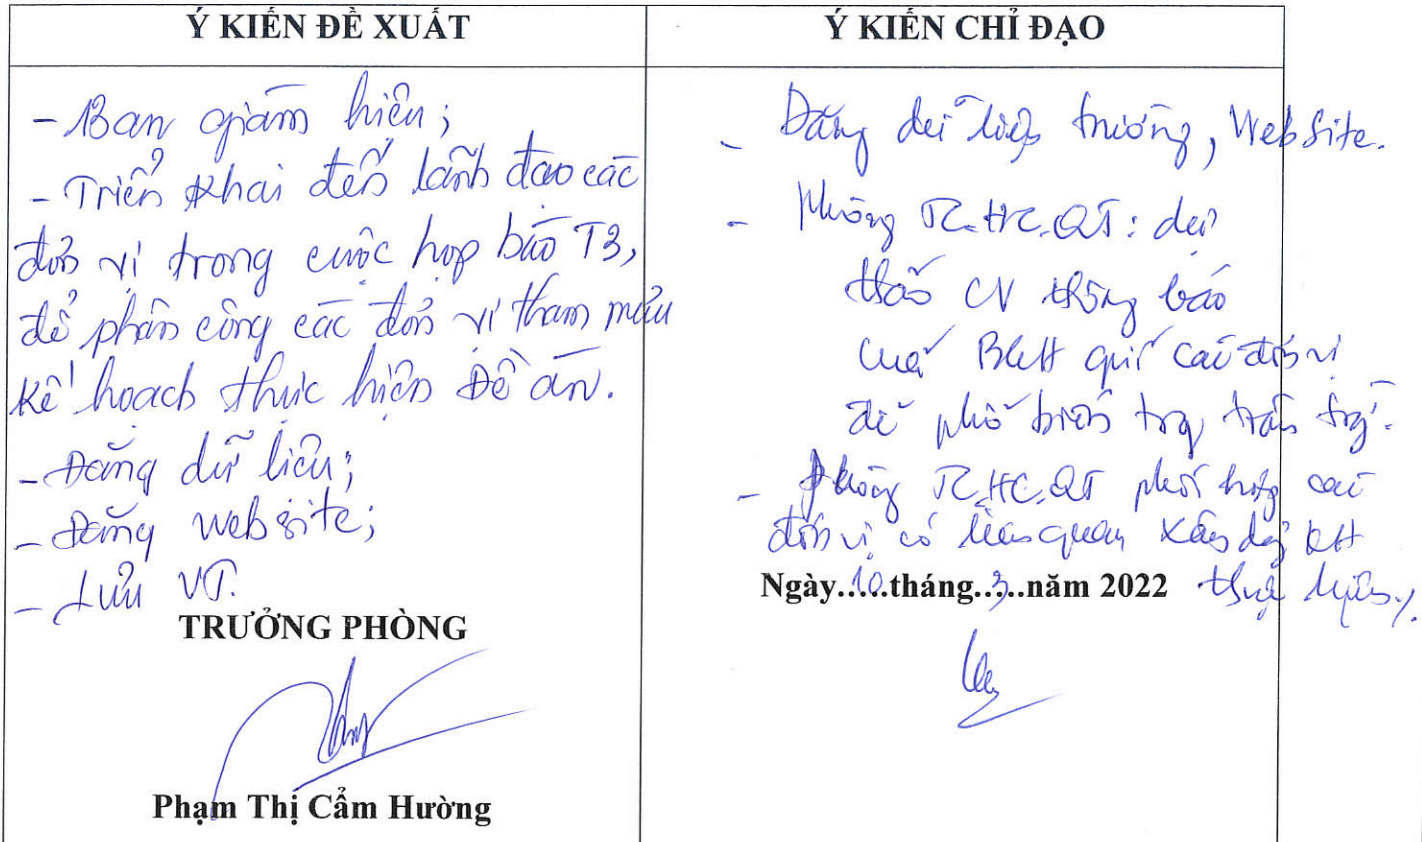 Ý KIẾN ĐỀ XUẤT
- Ban giám hiệu;
- Triển khai đến lãnh đạo các
đơn vị trong cuộc họp báo T3,
để phân công các đơn vị tham mưu
kế hoạch thực hiện Đề án.
- Đăng dữ liệu;
- Đăng website;
- Lưu VT.
TRƯỞNG PHÒNG
Phạm Thị Cẩm Hường
Ý KIẾN CHỈ ĐẠO
- Đăng dữ liệu trường, Website.
- Phòng TC.HC.QT: dự
thảo CV thông báo
của BGH gửi các đơn vị
để phổ biến
- Phòng TC.HC.QT phối hợp các
đơn vị có liên quan xây dựng KH
thực hiện./.
Ngày 10 tháng 3 năm 2022